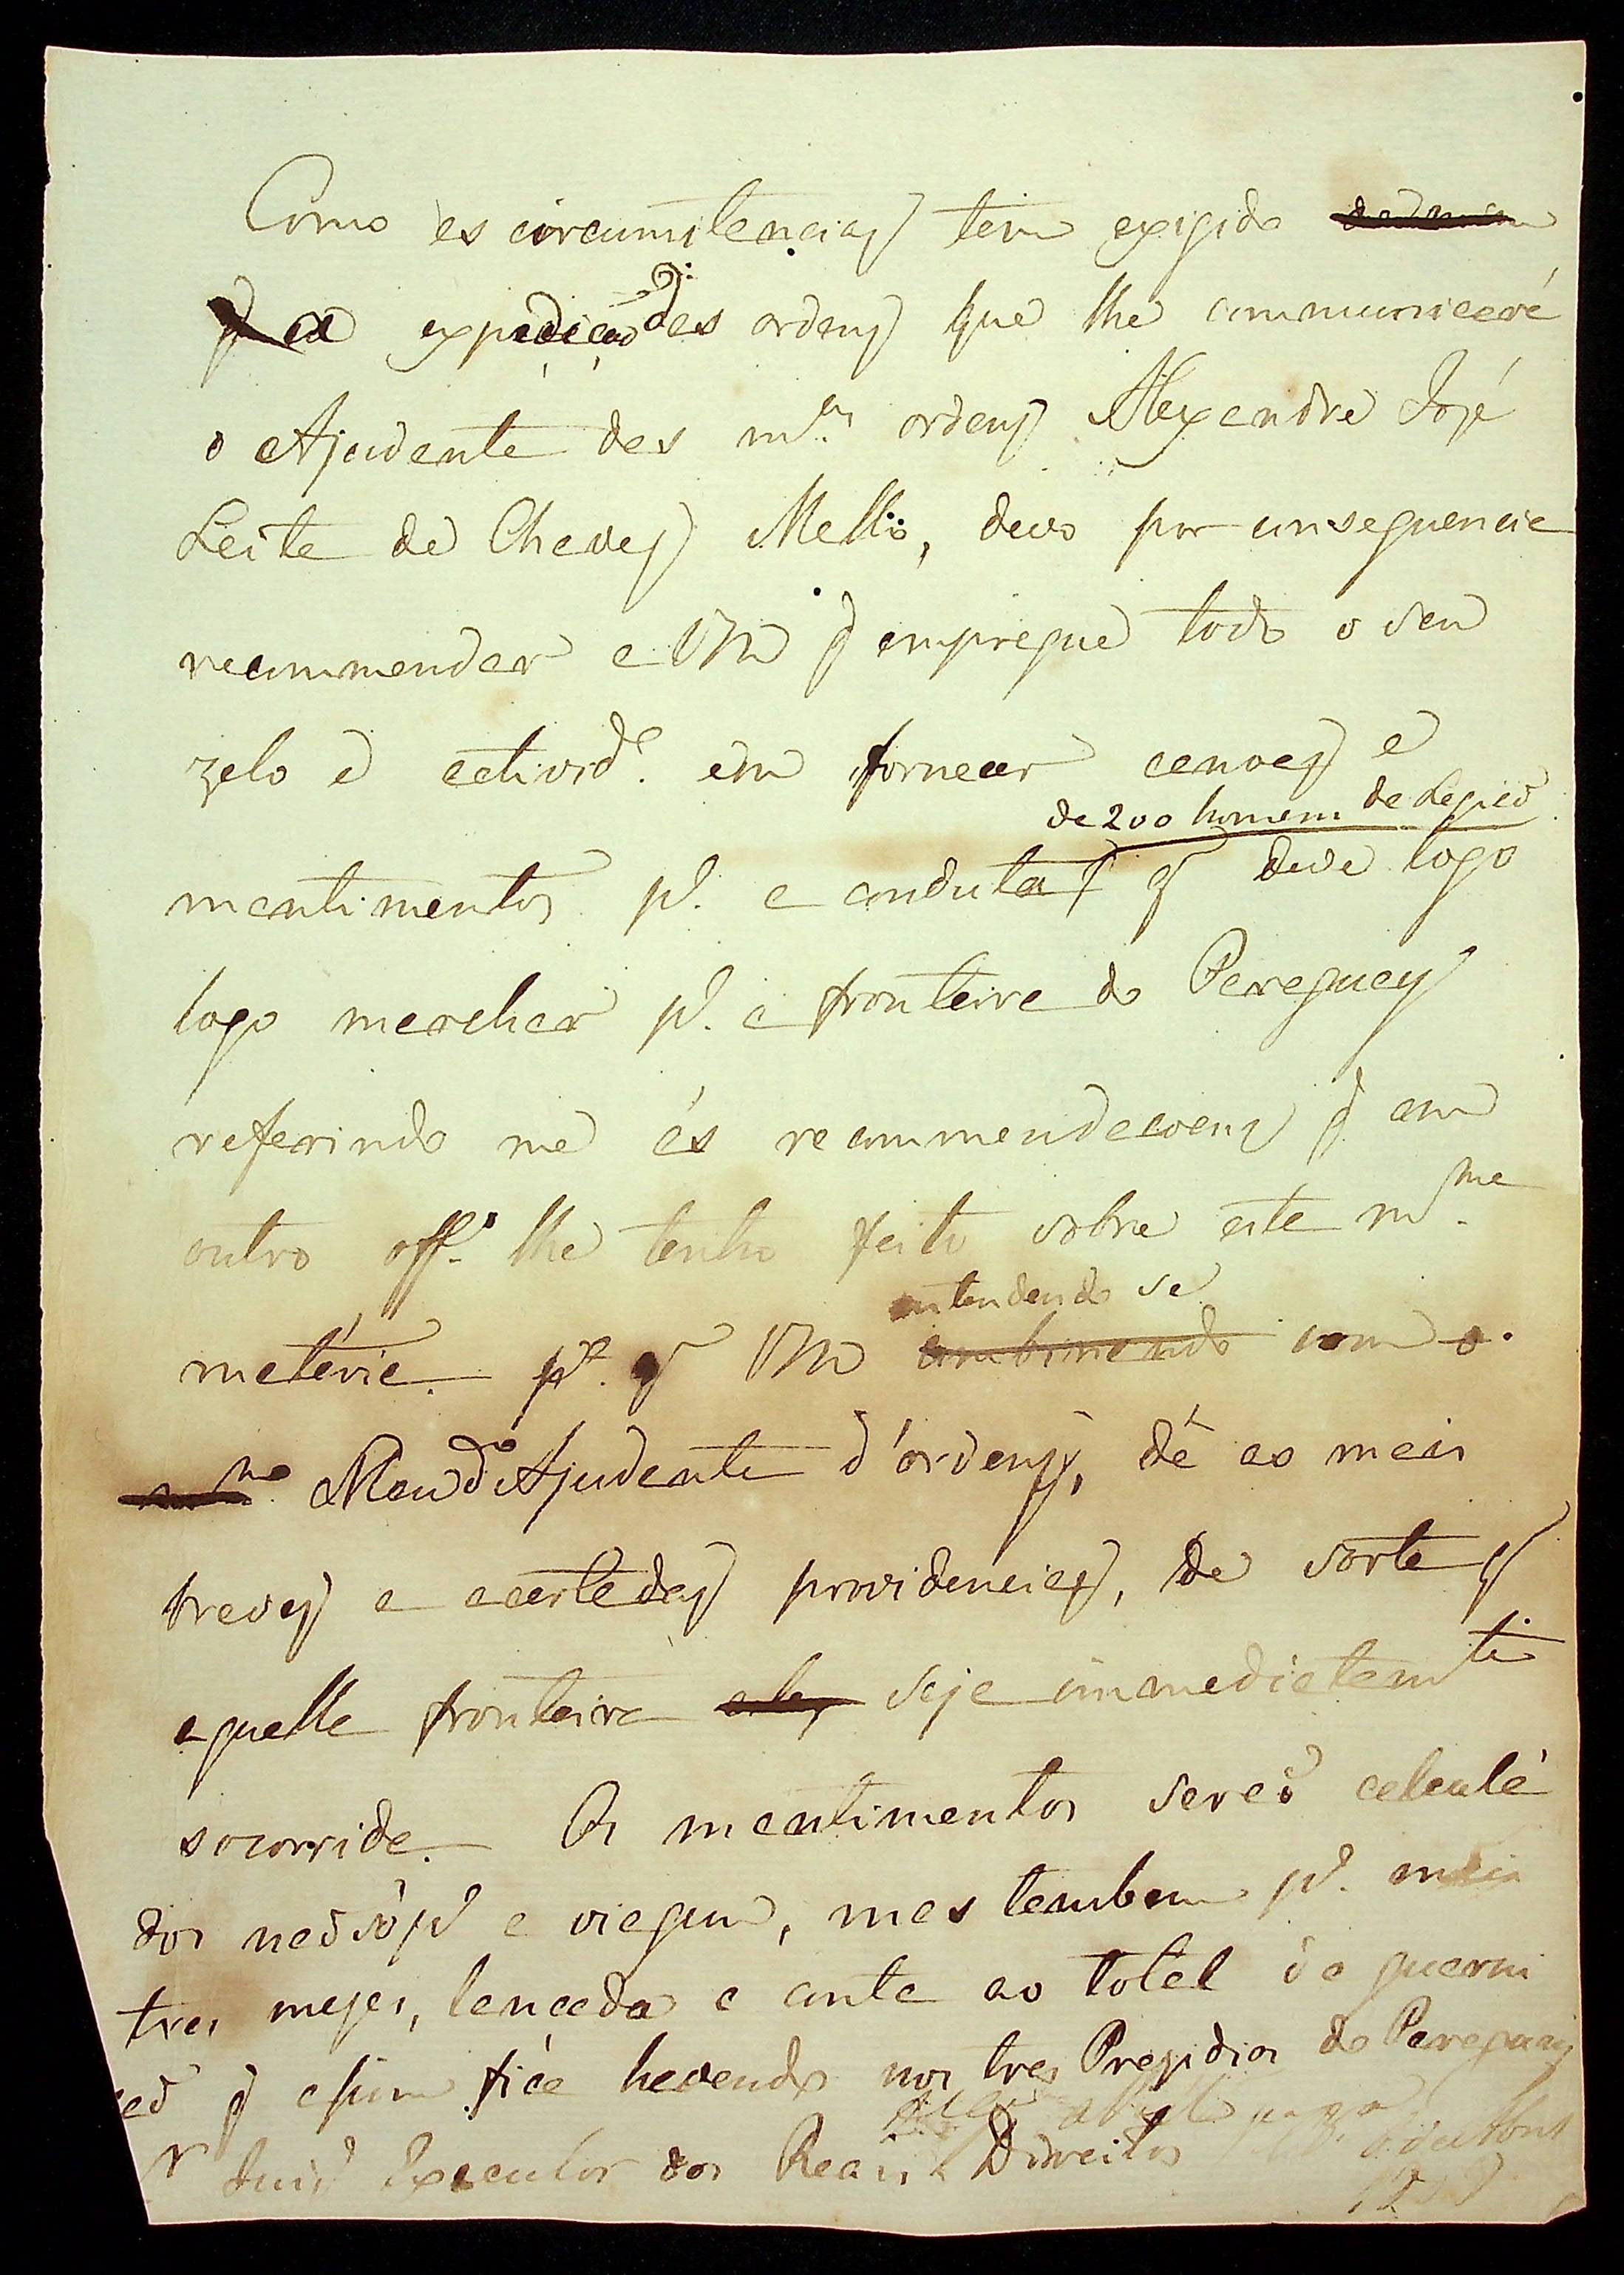 Como as circumstancias tem exigido
q̃ a expedição das ordens que lhe communicará
o Ajudante das m.ᵃˢ ordens Alexandre José
Leite de Chaves Mello, devo por consequencia
recommendar a Vm q̃ empregue todo o seu
zelo e activid.ᵉ em fornecer canoas e
de 200 homens da Legião
mantimentos p.ᵃ a conducta q̃ deve logo
logo marchar p.ᵃ a fronteira do Paraguay
referindo me ás recommendaçoens q̃ em
outro off.º lhe tenho feito sobre esta m.ᵐᵃ
materia. p.ᵃ q̃ Vm
entendendo se
combinando com o
m.ᵐᵒ Men.ᵈᵒ Ajudante d'ordens, dê as mais
breves e acertadas providencias, de sorte q̃
aquella fronteira seja immediatam.ᵗᵉ
socorrida. Os mantimentos serão calculá
dos não só p.ᵃ a viagem, mas tambem p.ᵃ mais
tres mezes, lançada a conta ao total da guarni
ção q̃ assim fica havendo nos tres Prezidios do Paraguay
Executor dos Reais Direitos